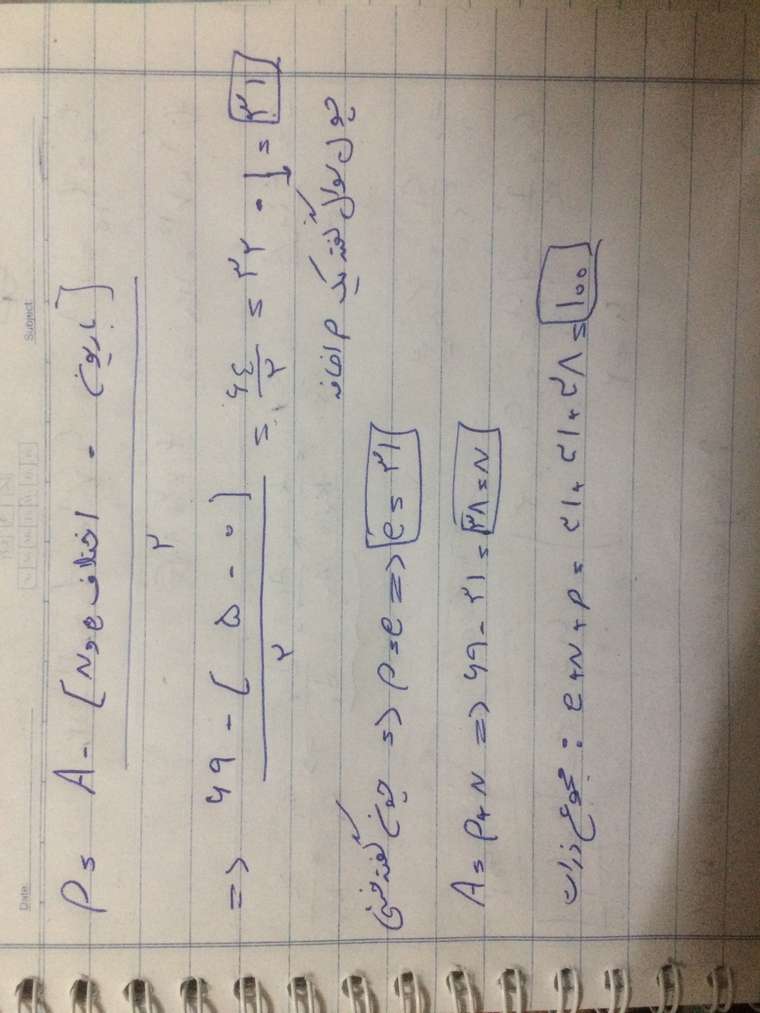 Date:
Subject:
P = A - [اختلاف e و N - بار یون]
۲
=> ۶۹ - [۵ - ۰] = ۶۴/۲ = ۳۲ - ۱ = ۳۱
۲
چون سوال گفته یک P اضافه
چون گفته خنثی => P = e => e = ۳۱
A = P + N => ۶۹ - ۳۱ = ۳۸ = N
مجموع ذرات : e + N + P = ۳۱ + ۳۱ + ۳۸ = ۱۰۰